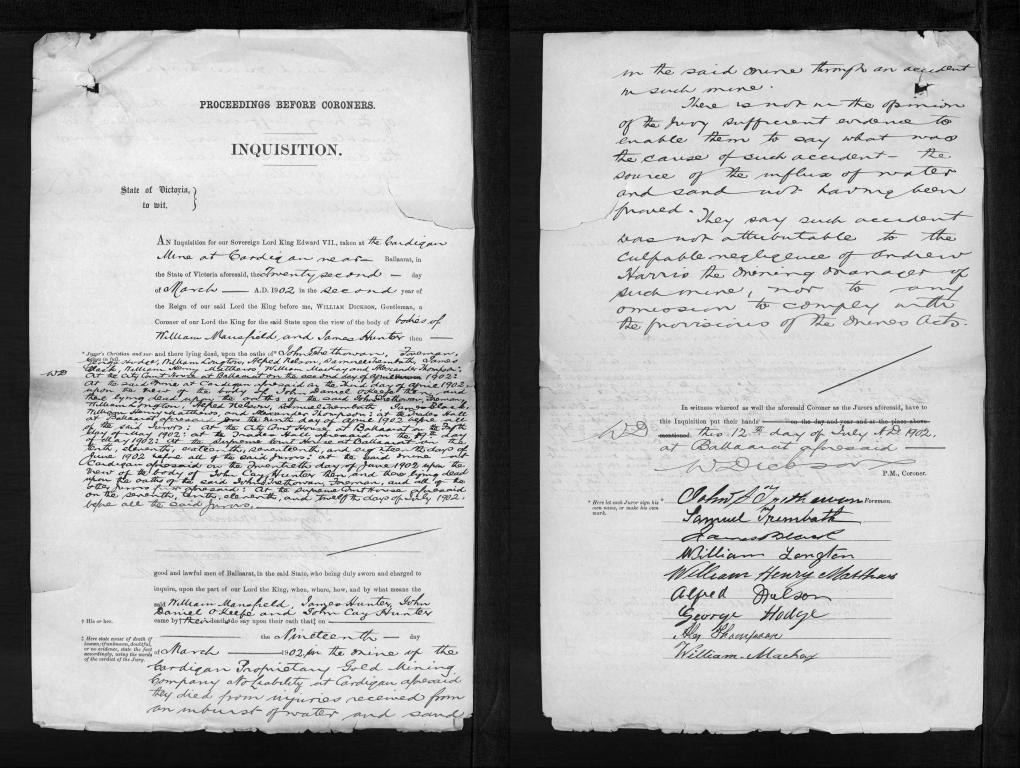 PROCEEDINGS BEFORE CORONERS.
INQUISITION.
State of Victoria, }
to wit.
AN Inquisition for our Sovereign Lord King Edward VII., taken at the Cardigan
Mine at Cardigan near — Ballaarat, in
the State of Victoria aforesaid, the Twenty second — day
of March — A.D. 1902 in the second year of
the Reign of our said Lord the King before me, WILLIAM DICKSON, Gentleman, a
Coroner of our Lord the King for the said State upon the view of the body of bodies of
William Mansfield, and James Hunter then —
* Juror's Christian and sur- and there lying dead, upon the oaths of* John Trethowan, Foreman,
George Hodge, William Longton, Alfred Nelson, Samuel Trembath, James
Black, William Henry Matthews, William Mackay and Alexander Thompson:
WD At the City Court House at Ballaarat on the second day of April 1902:
At the said Mine at Cardigan aforesaid on the Third day of April 1902
upon the view of the body of John Daniel O'Keefe then and
there lying dead upon the oaths of the said John Trethowan, Foreman,
William Longton, Alfred Nelson, Samuel Trembath, James Black,
William Henry Matthews, and Alexander Thompson: at the Trades Hall
at Ballaarat aforesaid on the tenth day of April 1902 before all
of the said Jurors: At the City Court House at Ballaarat on the Fifth
day of May 1902: at the Trades Hall aforesaid on the 19th day
of May 1902: At the Supreme Court House at Ballaarat on the
tenth, eleventh, sixteenth, seventeenth, and eighteenth days of
June 1902 before all of the said Jurors: at the said mine at
Cardigan aforesaid on the Twentieth day of June 1902 upon the
view of the body of John Cay Hunter then and there lying dead
upon the oaths of the said John Trethowan, Foreman, and all of the
other Jurors aforesaid: At the Supreme Court House aforesaid
on the seventh, tenth, eleventh, and twelfth days of July 1902
before all the said Jurors.
good and lawful men of Ballaarat, in the said State, who being duly sworn and charged to
inquire, upon the part of our Lord the King, when, where, how, and by what means the
said William Mansfield, James Hunter, John
Daniel O'Keefe and John Cay Hunter
† His or her. came by † their deaths do say upon their oath that ‡ on
‡ Here state cause of death if the Nineteenth — day
known; if unknown, doubtful,
or no evidence, state the fact of March — 1902, in the mine of the
accordingly, using the words
of the verdict of the Jury. Cardigan Proprietary Gold Mining
Company No Liability at Cardigan aforesaid
they died from injuries received from
an inburst of water and sand
in the said mine through an accident
in such mine.
There is not in the opinion
of the Jury sufficient evidence to
enable them to say what was
the cause of such accident — the
source of the influx of water
and sand not having been
proved.
They say such accident
was not attributable to the
culpable negligence of Andrew
Harris the mining manager of
such mine, nor to any
omission to comply with
the provisions of the Mines Acts.
In witness whereof as well the aforesaid Coroner as the Jurors aforesaid, have to
this Inquisition put their hands on the day and year and at the place above
WD mentioned this 12th day of July A.D. 1902,
at Ballaarat aforesaid —
W Dickson
P.M., Coroner.
* Here let each Juror sign his * John A Trethowan Foreman.
own name, or make his own
mark.
Samuel Trembath
James Black
William Longton
William Henry Matthews
Alfred Nelson
George Hodge
Alex Thompson
William Mackay